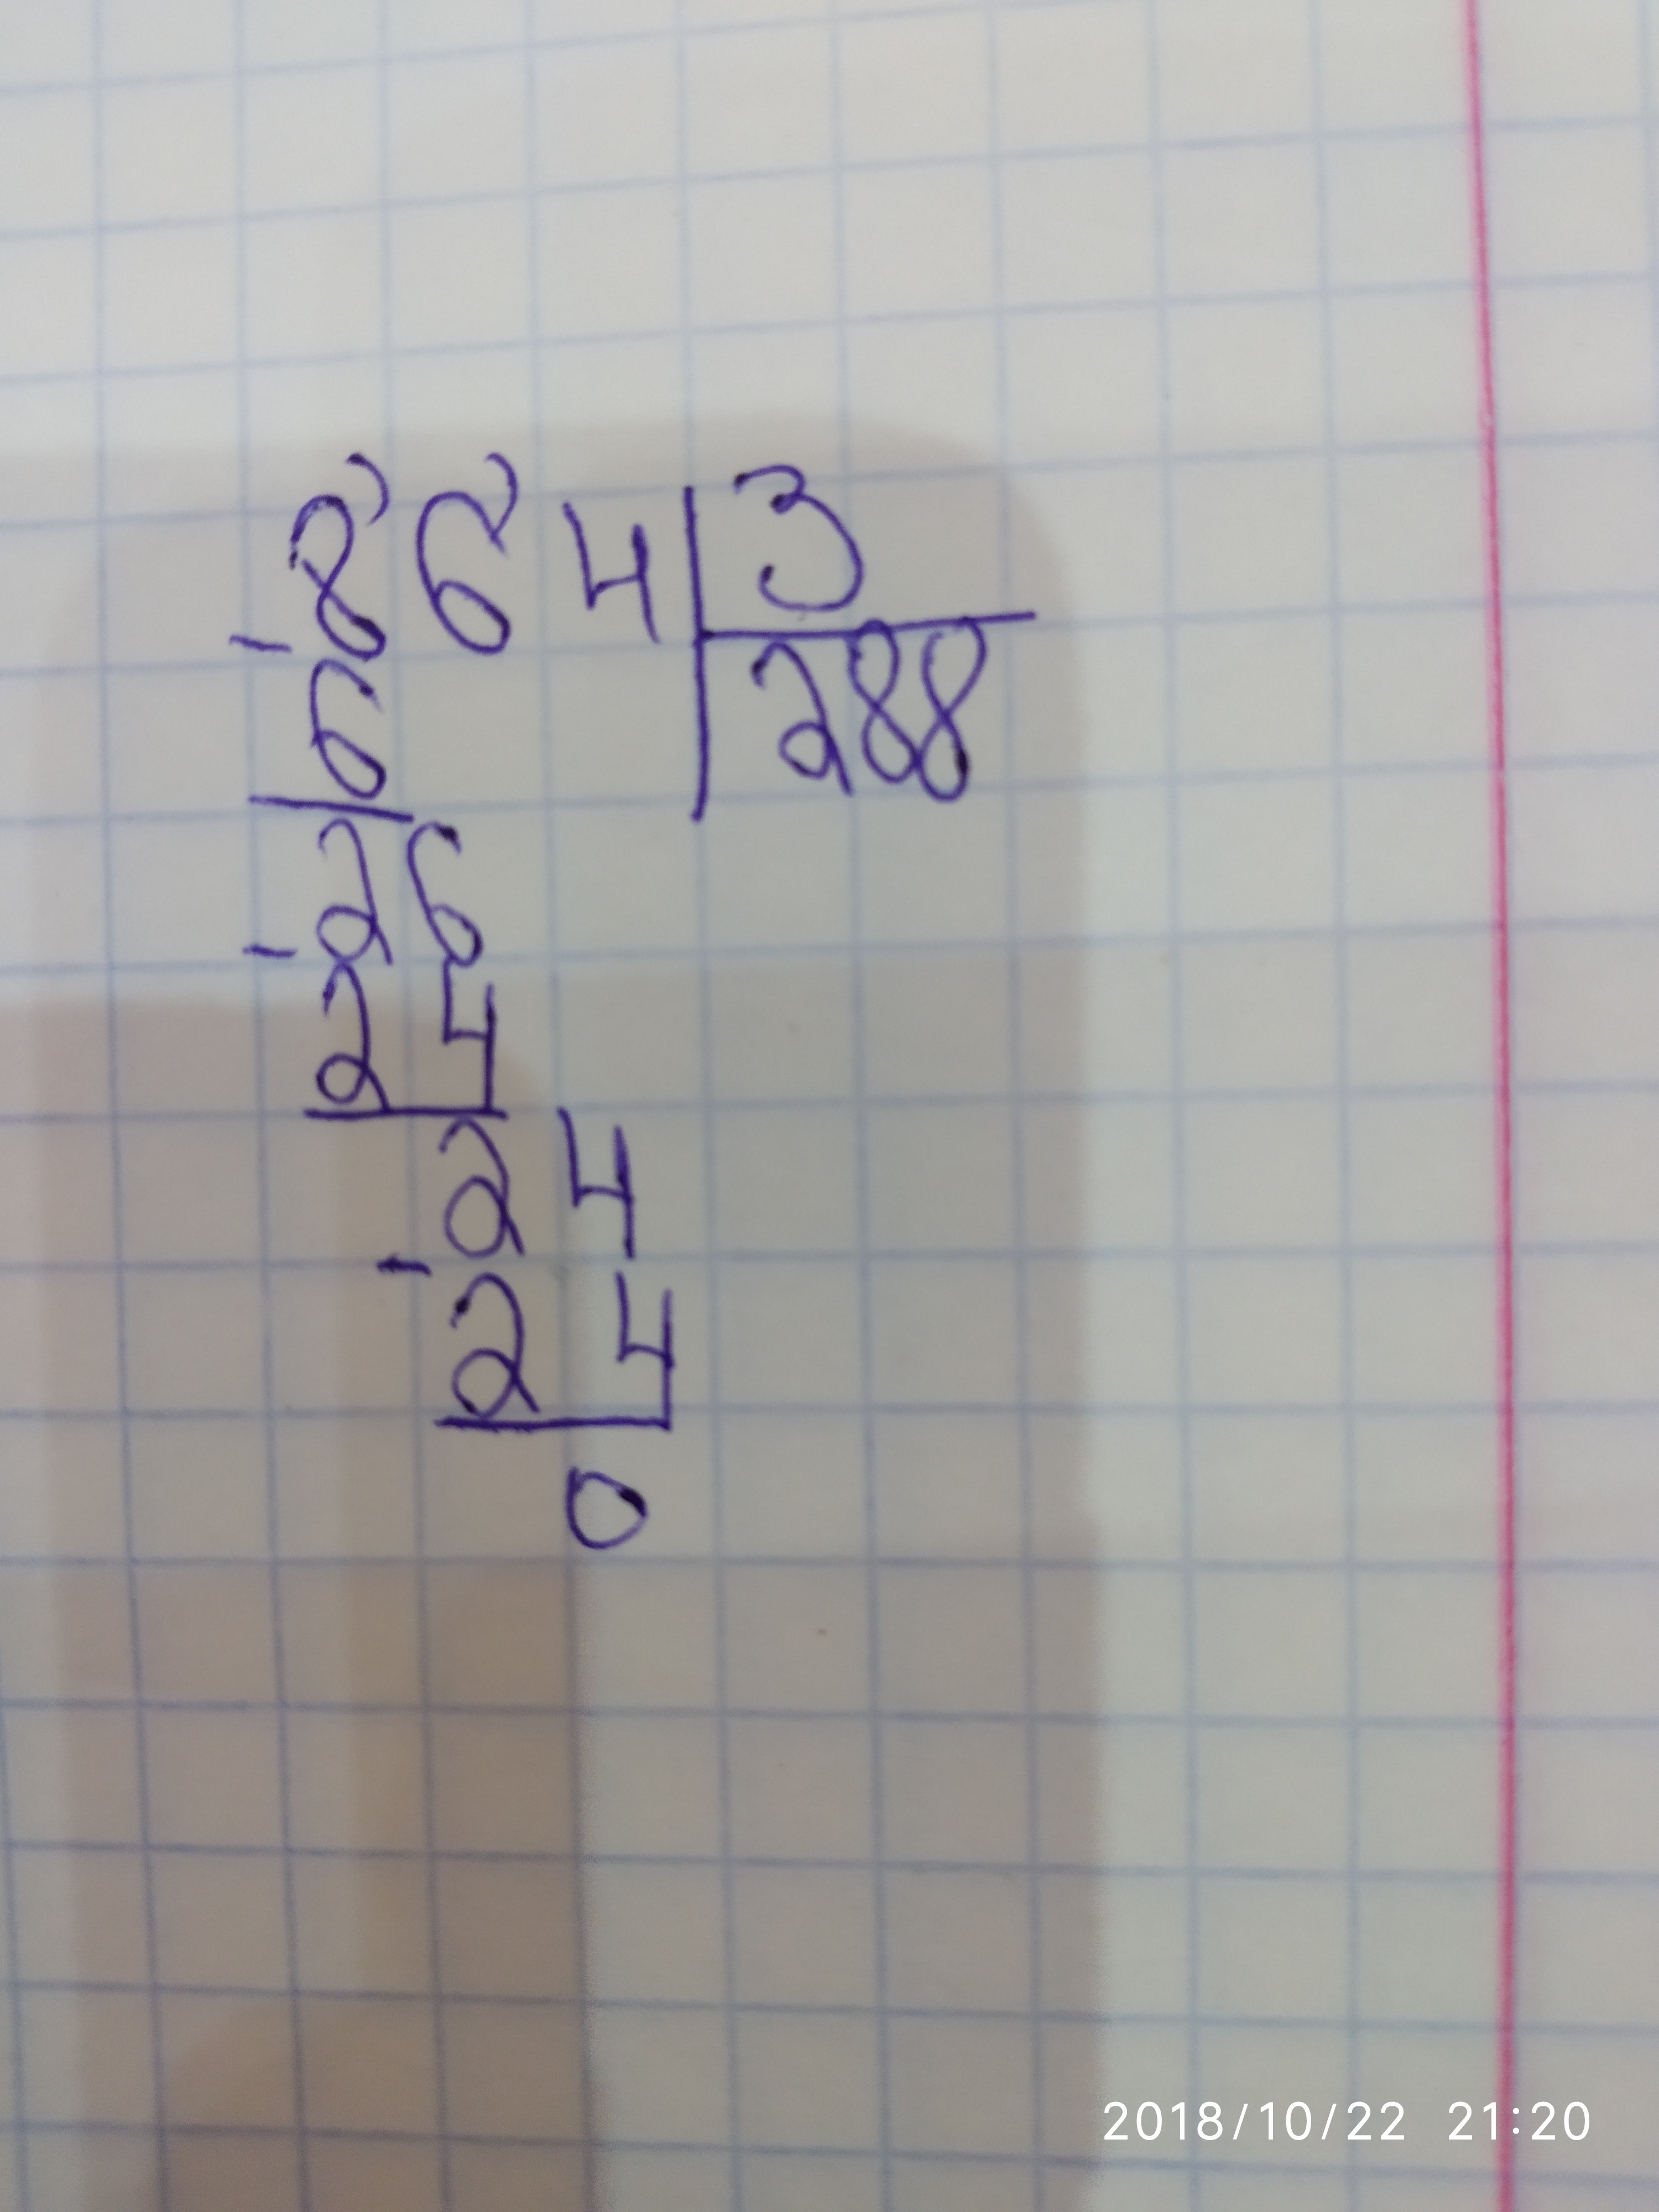 864 | 3
- 6 | 288
26
- 24
24
- 24
0
2018/10/22 21:20